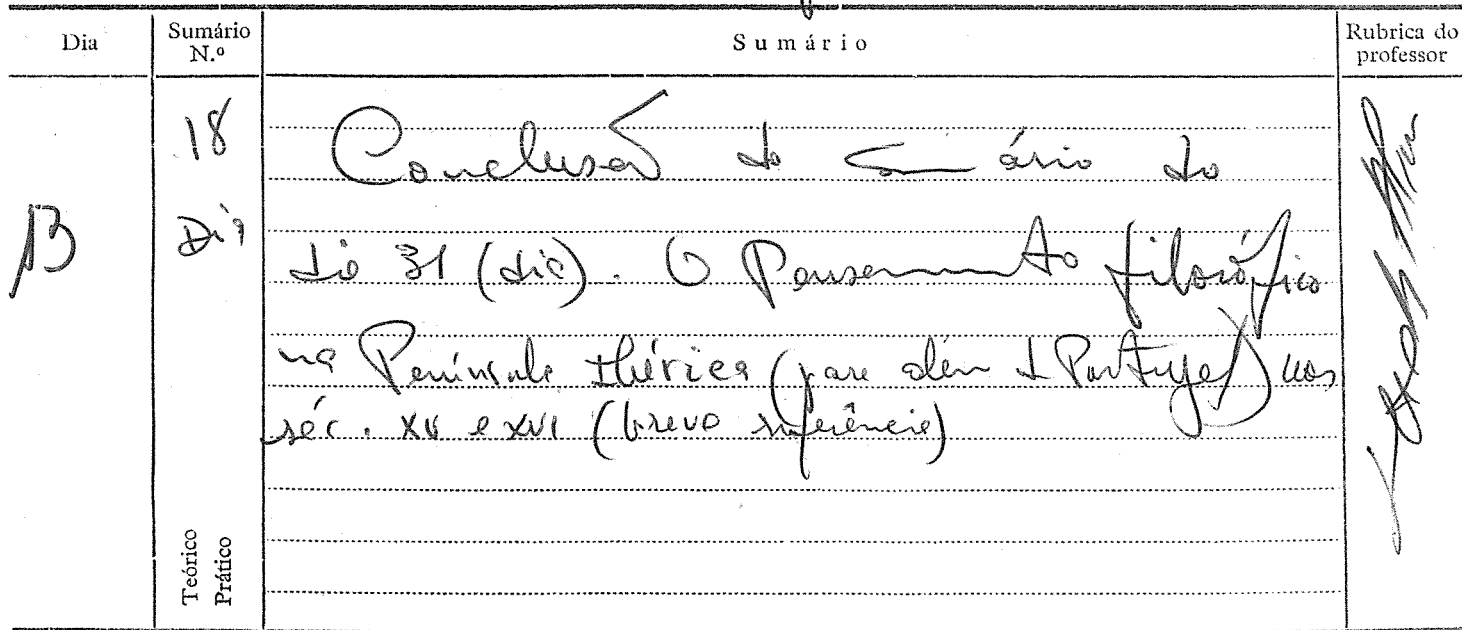 Dia Sumário N.º Sumário Rubrica do professor
13 18
Conclusão do Sumário do
dia 31 (dia). O Pensamento filosófico
na Península Ibérica (para além d Portugal) nos
séc. XV e XVI (breve referência)
Teórico
Prático